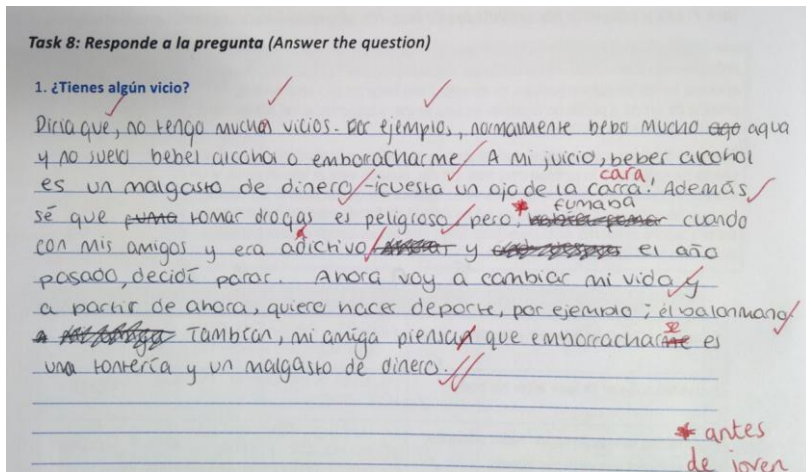 Task 8: Responde a la pregunta (Answer the question)
1. ¿Tienes algún vicio?
Diría que, no tengo muchos vicios. Por ejemplos, normalmente bebo mucho agua
y no suelo bebel alcohol o emborracharme. A mi juicio, beber alcohol
cara
es un malgasto de dinero - ¡cuesta un ojo de la carra! Además
fumaba
sé que tomar drogas es peligroso, pero, * cuando
con mis amigos y era adictivo y el año
pasado, decidí parar. Ahora voy a cambiar mi vida y
a partir de ahora, quiero hacer deporte, por ejemplo; el balonmano
se
Tambían, mi amiga piensan que emborracharme es
una tontería y un malgasto de dinero.
* antes
de joven